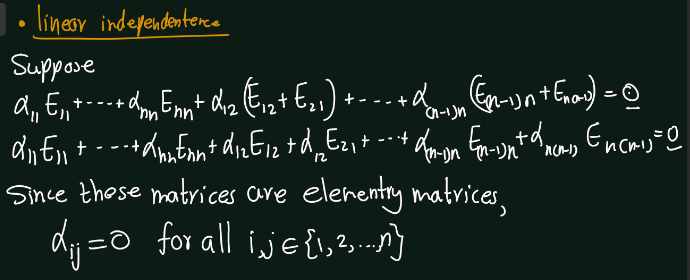 • linear independentence
Suppose
α₁₁E₁₁+----+αₙₙEₙₙ+α₁₂(E₁₂+E₂₁)+---+α₍ₙ₋₁₎ₙ(E₍ₙ₋₁₎ₙ+Eₙ₍ₙ₋₁₎)=0
α₁₁E₁₁+----+αₙₙEₙₙ+α₁₂E₁₂+α₁₂E₂₁+---+α₍ₙ₋₁₎ₙE₍ₙ₋₁₎ₙ+αₙ₍ₙ₋₁₎Eₙ₍ₙ₋₁₎=0
Since those matrices are elementry matrices,
αᵢⱼ=0 for all i,j∈{1,2,...n}